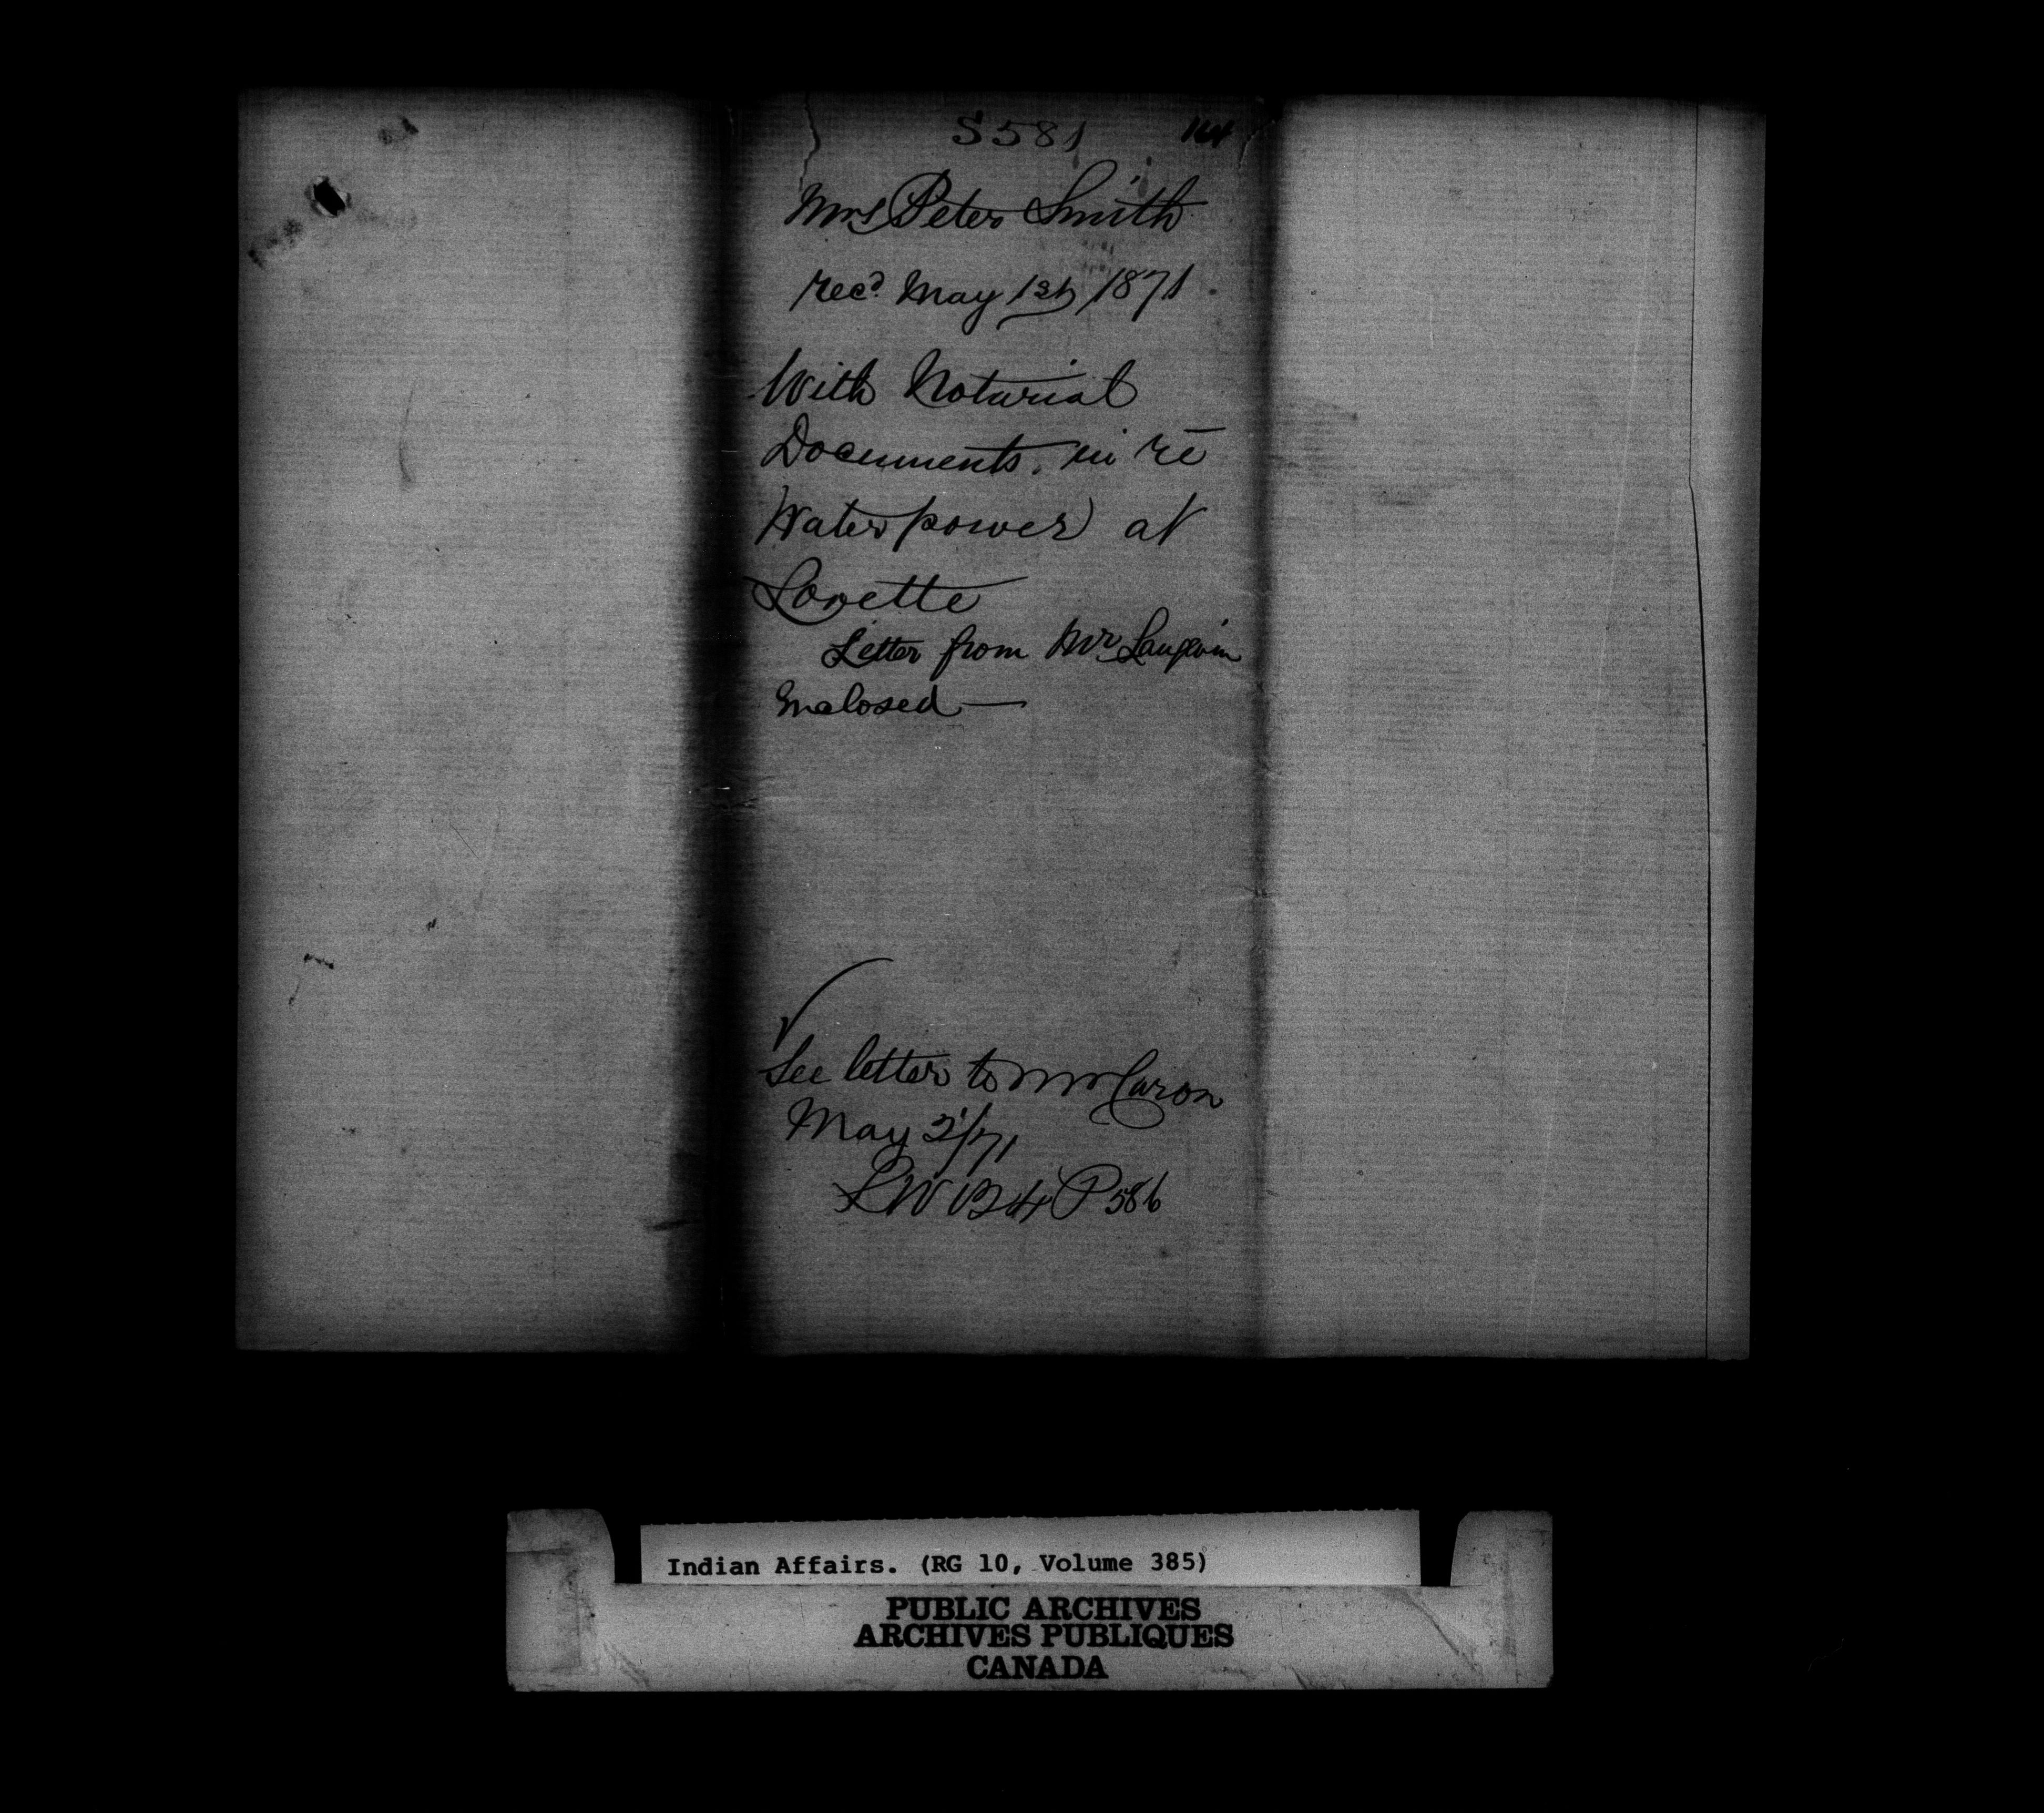 S 581
Mrs Peter Smith
recd. May 1st, 1871.
With Notarial
Documents. in re
Water power at
Lorette
Letter from Mr Langevin
Enclosed —
See letter to Mr Caron
May 2/71
L W B 4 P 586
Indian Affairs. (RG 10, Volume 385)
PUBLIC ARCHIVES
ARCHIVES PUBLIQUES
CANADA